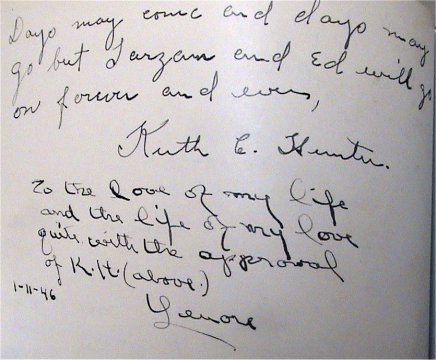 Days may come and days may
go but Tarzan and Ed will go
on forever and ever,
Ruth E. Hunter.
To the love of my life
and the life of my love
quite with the approval
of K.H. (above.)
1-11-46
Lenore